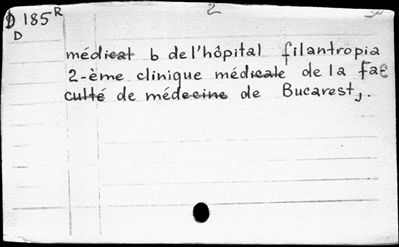 D 185 R
2
D
médical b de l'hôpital filantropia
2-ème clinique médicale de la fac
culté de médecine de Bucarest,.